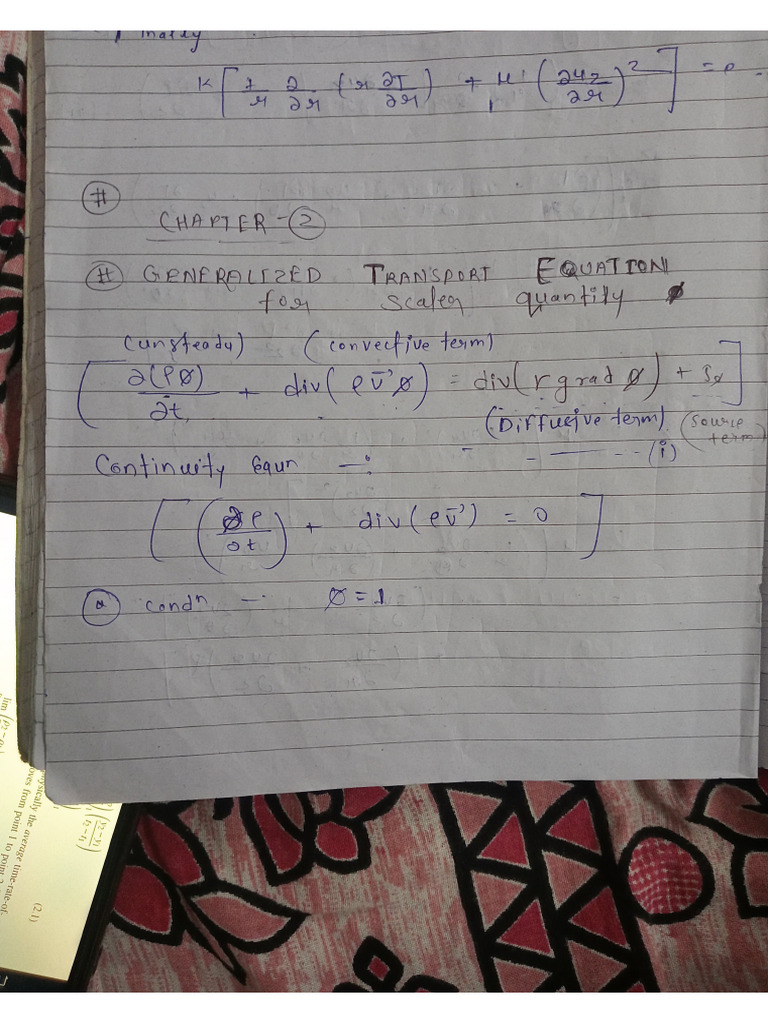 K [ 1/r ∂/∂r (r ∂T/∂r) + μ (∂uz/∂r)² ] = 0
#
CHAPTER - 2
# GENERALIZED TRANSPORT EQUATION
for scaler quantity ϕ
(unsteady) (convective term)
[ ∂(ρϕ)/∂t + div(ρv⃗ϕ) = div(Γ grad ϕ) + Sϕ ]
(Diffusive term) (source term)
- - —— - - - (i)
Continuity Equn —:
[ (∂ρ/∂t) + div(ρv⃗) = 0 ]
(a) condn —: ϕ = 1
lim
physically the average time-rate-of-
oves from point to point
(2.1)